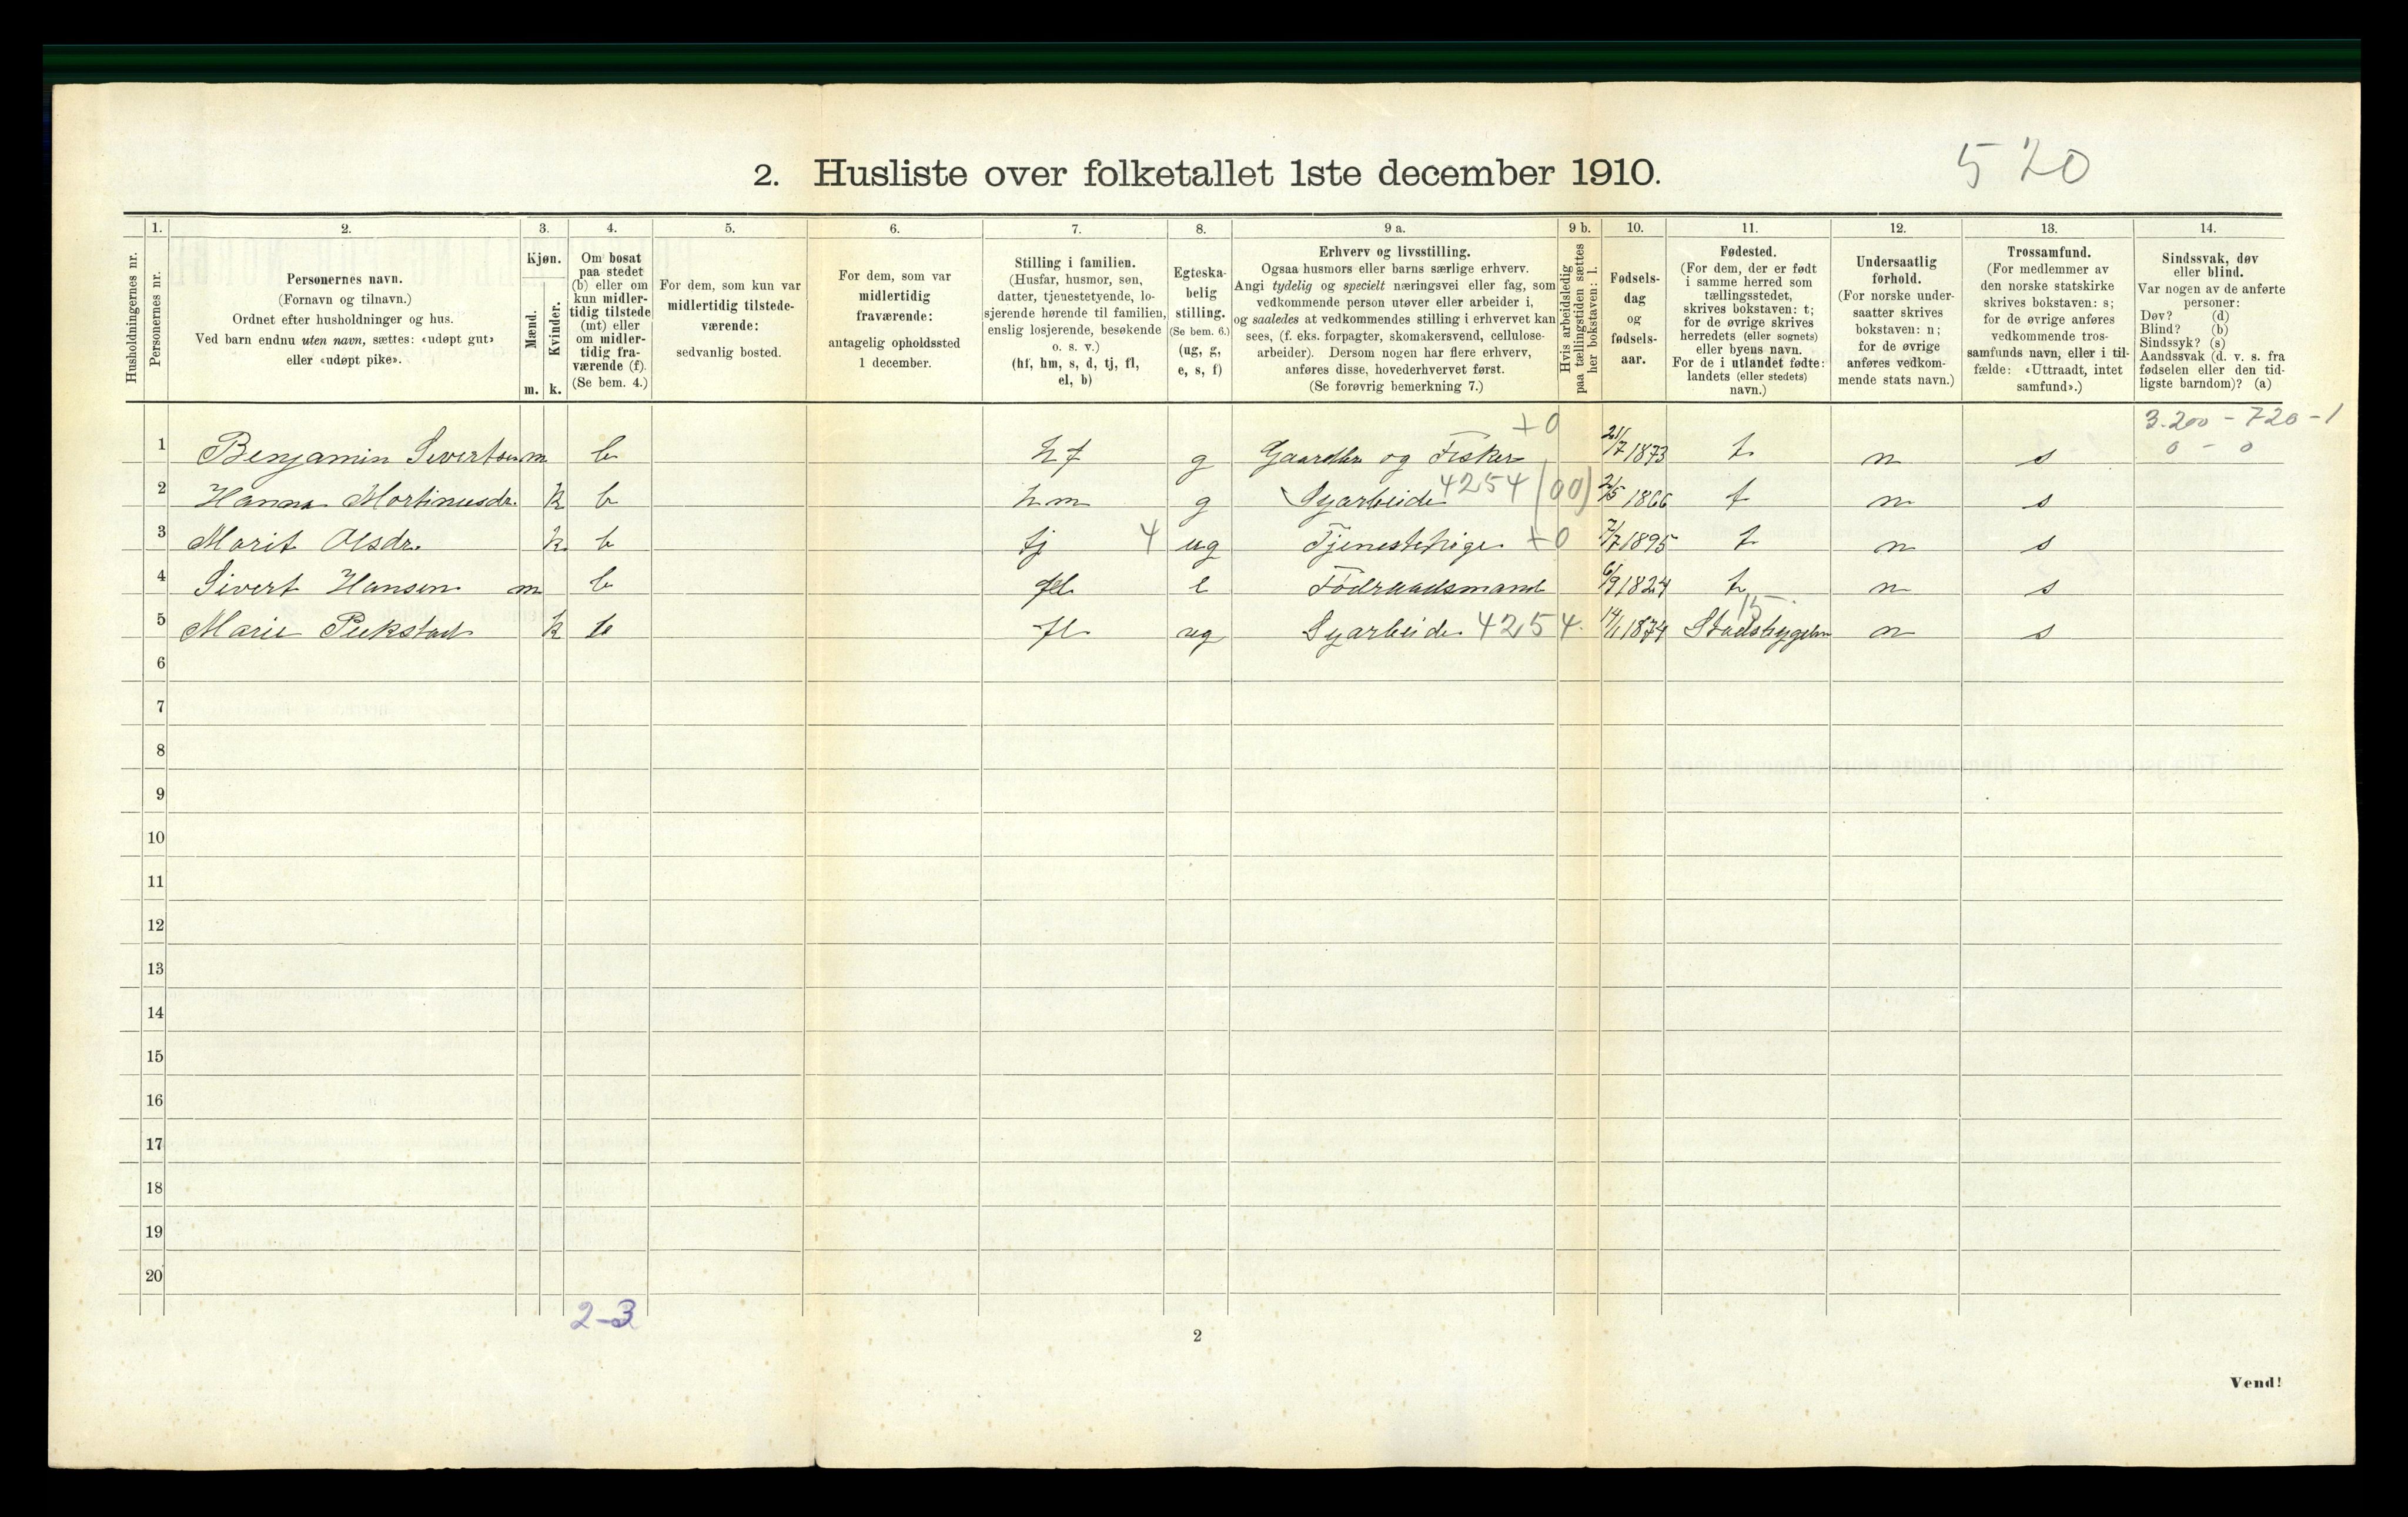 2. Husliste over folketallet 1ste december 1910.
520
1. 2. 3. 4. 5. 6. 7. 8. 9 a. 9 b. 10. 11. 12. 13. 14.
Husholdningernes nr.
Personernes nr.
Personernes navn.
(Fornavn og tilnavn.)
Ordnet efter husholdninger og hus.
Ved barn endnu uten navn, sættes: «udøpt gut»
eller «udøpt pike».
Kjøn.
Mænd.
Kvinder.
m. k.
Om bosat
paa stedet
(b) eller om
kun midler-
tidig tilstede
(mt) eller
om midler-
tidig fra-
værende (f).
(Se bem. 4.)
For dem, som kun var
midlertidig tilstede-
værende:
sedvanlig bosted.
For dem, som var
midlertidig
fraværende:
antagelig opholdssted
1 december.
Stilling i familien.
(Husfar, husmor, søn,
datter, tjenestetyende, lo-
sjerende hørende til familien,
enslig losjerende, besøkende
o. s. v.)
(hf, hm, s, d, tj, fl,
el, b)
Egteska-
belig
stilling.
(Se bem. 6.)
(ug, g,
e, s, f)
Erhverv og livsstilling.
Ogsaa husmors eller barns særlige erhverv.
Angi tydelig og specielt næringsvei eller fag, som
vedkommende person utøver eller arbeider i,
og saaledes at vedkommendes stilling i erhvervet kan
sees, (f. eks. forpagter, skomakersvend, cellulose-
arbeider). Dersom nogen har flere erhverv,
anføres disse, hovederhvervet først.
(Se forøvrig bemerkning 7.)
Hvis arbeidsledig
paa tællingstiden sættes
her bokstaven: l.
Fødsels-
dag
og
fødsels-
aar.
Fødested.
(For dem, der er født
i samme herred som
tællingsstedet,
skrives bokstaven: t;
for de øvrige skrives
herredets (eller sognets)
eller byens navn.
For de i utlandet fødte:
landets (eller stedets)
navn.)
Undersaatlig
forhold.
(For norske under-
saatter skrives
bokstaven: n;
for de øvrige
anføres vedkom-
mende stats navn.)
Trossamfund.
(For medlemmer av
den norske statskirke
skrives bokstaven: s;
for de øvrige anføres
vedkommende tros-
samfunds navn, eller i til-
fælde: «Uttraadt, intet
samfund».)
Sindssvak, døv
eller blind.
Var nogen av de anførte
personer:
Døv? (d)
Blind? (b)
Sindssyk? (s)
Aandssvak (d. v. s. fra
fødselen eller den tid-
ligste barndom)? (a)
+0 3.200 - 720 - 1
1 Benjamin Sivertsen m b hf g Gaardbr og Fisker 21/7 1873 t n s 0 - 0
2 Hanna Mortinusdr. k b hm g Syarbeide 4254 (00) 2/5 1866 t n s
3 Marit Olsdr. k b tj 4 ug Tjenestepige +0 7/7 1895 t n s
4 Sivert Hansen m b fl e Födraadsmand 6/9 1824 t n s
15
5 Marie Pukstad k b fl ug Syarbeide 4254 14/1 1874 Stadsbygden n s
6
7
8
9
10
11
12
13
14
15
16
17
18
19
20
2-3
2
Vend!